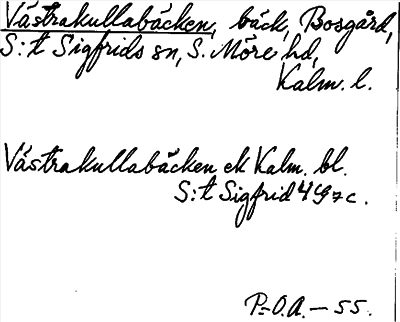 Västrakullabäcken, bäck, Bosgård,
S:t Sigfrids sn, S. Möre hd,
Kalm. l.
Västrakullabäcken ek Kalm. bl.
S:t Sigfrid 4G7c.
P-O.A. — 55.